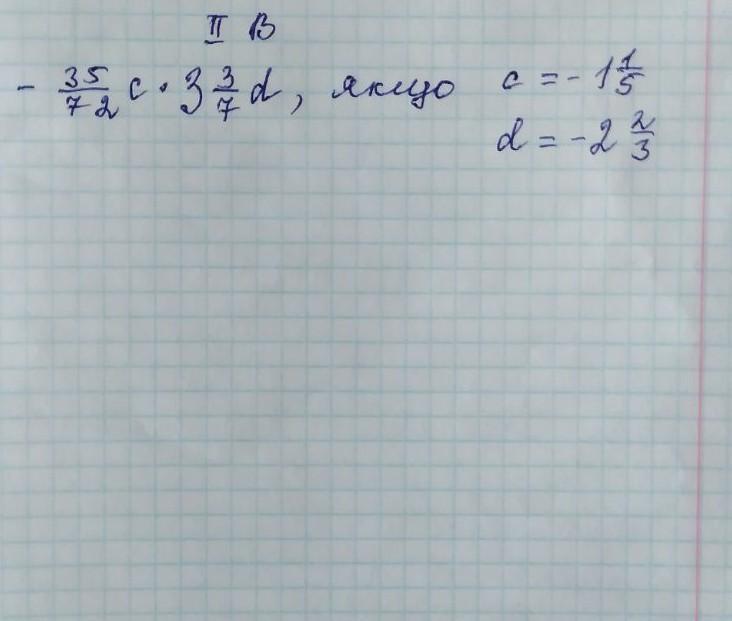 II В
- 35/72 c · 3 3/7 d, якщо c = - 1 1/5
d = - 2 2/3